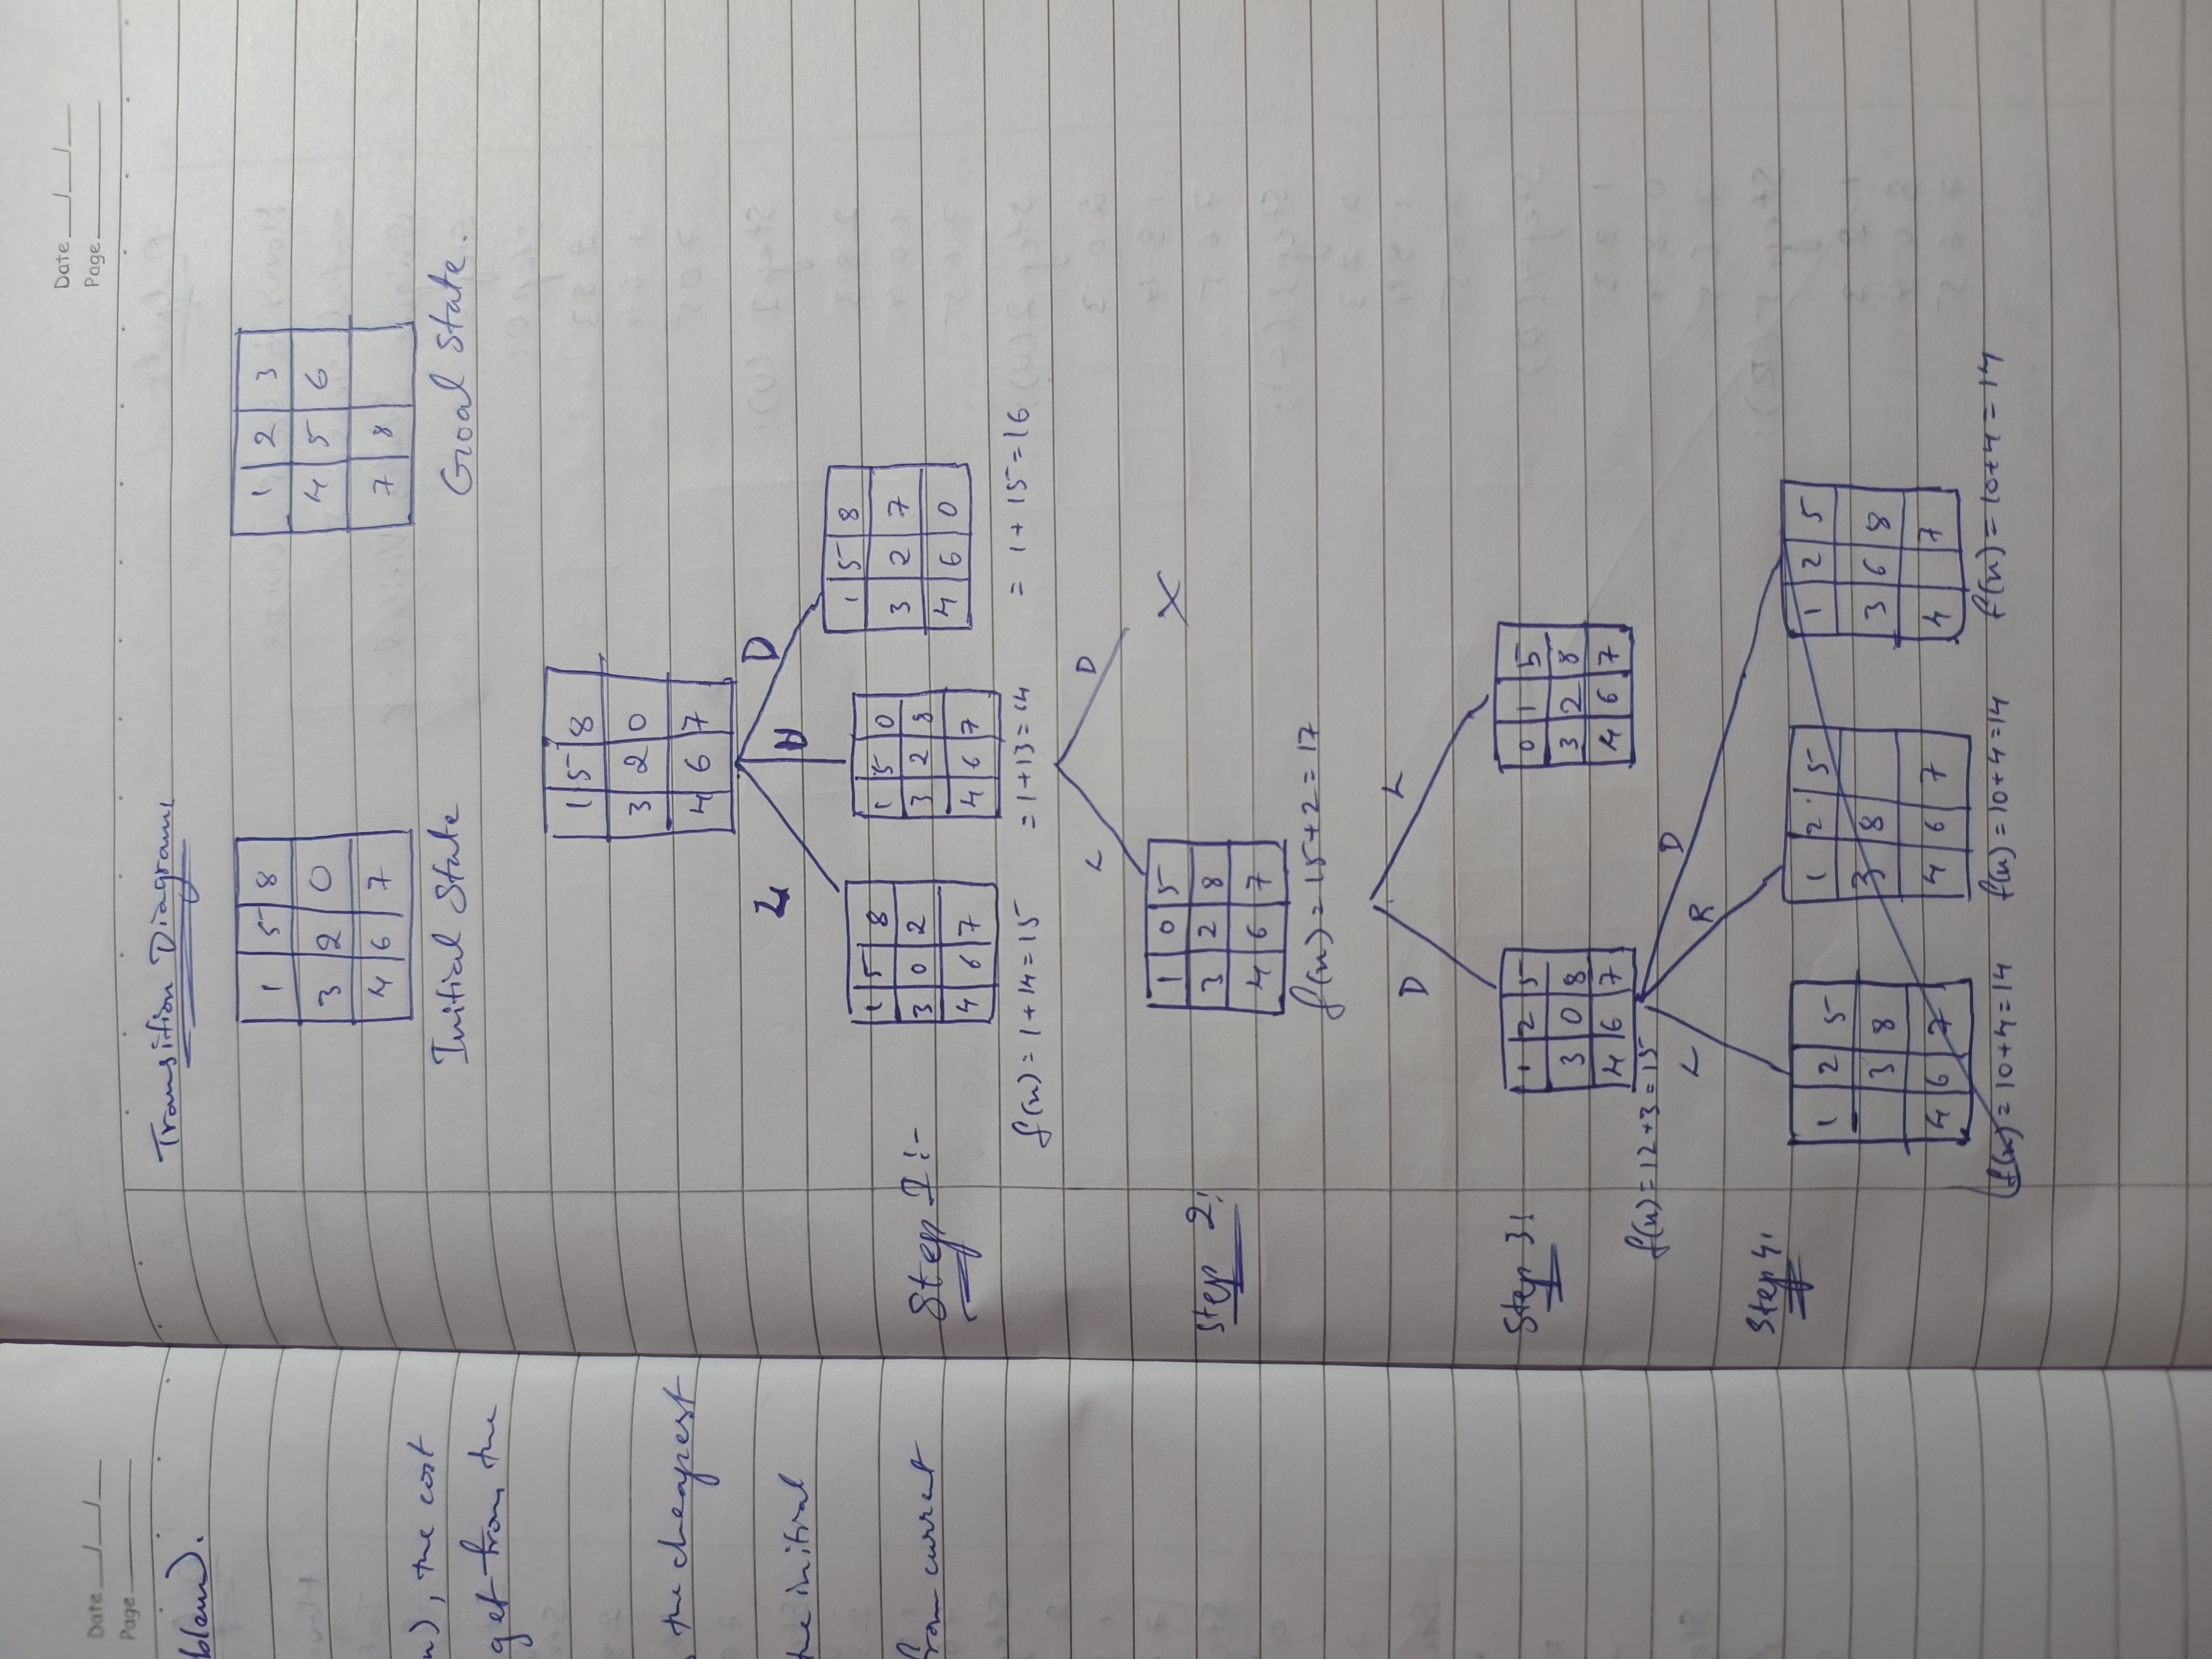 Date __/__/__
Page
blem).
n), the cost
get from the
the cheapest
the initial
from current
Date __/__/__
Page
Transition Diagram
1 5 8
3 2 0
4 6 7
Initial State
1 2 3
4 5 6
7 8
Goal State.
1 5 8
3 2 0
4 6 7
L U D
Step 1:-
1 5 8
3 0 2
4 6 7
f(n) = 1+14=15
1 5 0
3 2 8
4 6 7
= 1+13=14
1 5 8
3 2 7
4 6 0
= 1+15=16
L D
Step 2:
1 0 5
3 2 8
4 6 7
X
f(n) = 15+2=17
D L
Step 3:
1 2 5
3 0 8
4 6 7
f(n)=12+3=15
0 1 5
3 2 8
4 6 7
L R D
Step 4:
1 2 5
3 8
4 6 7
f(n)=10+4=14
1 2 5
3 8
4 6 7
f(n)=10+4=14
1 2 5
3 6 8
4 7
f(n)=10+4=14